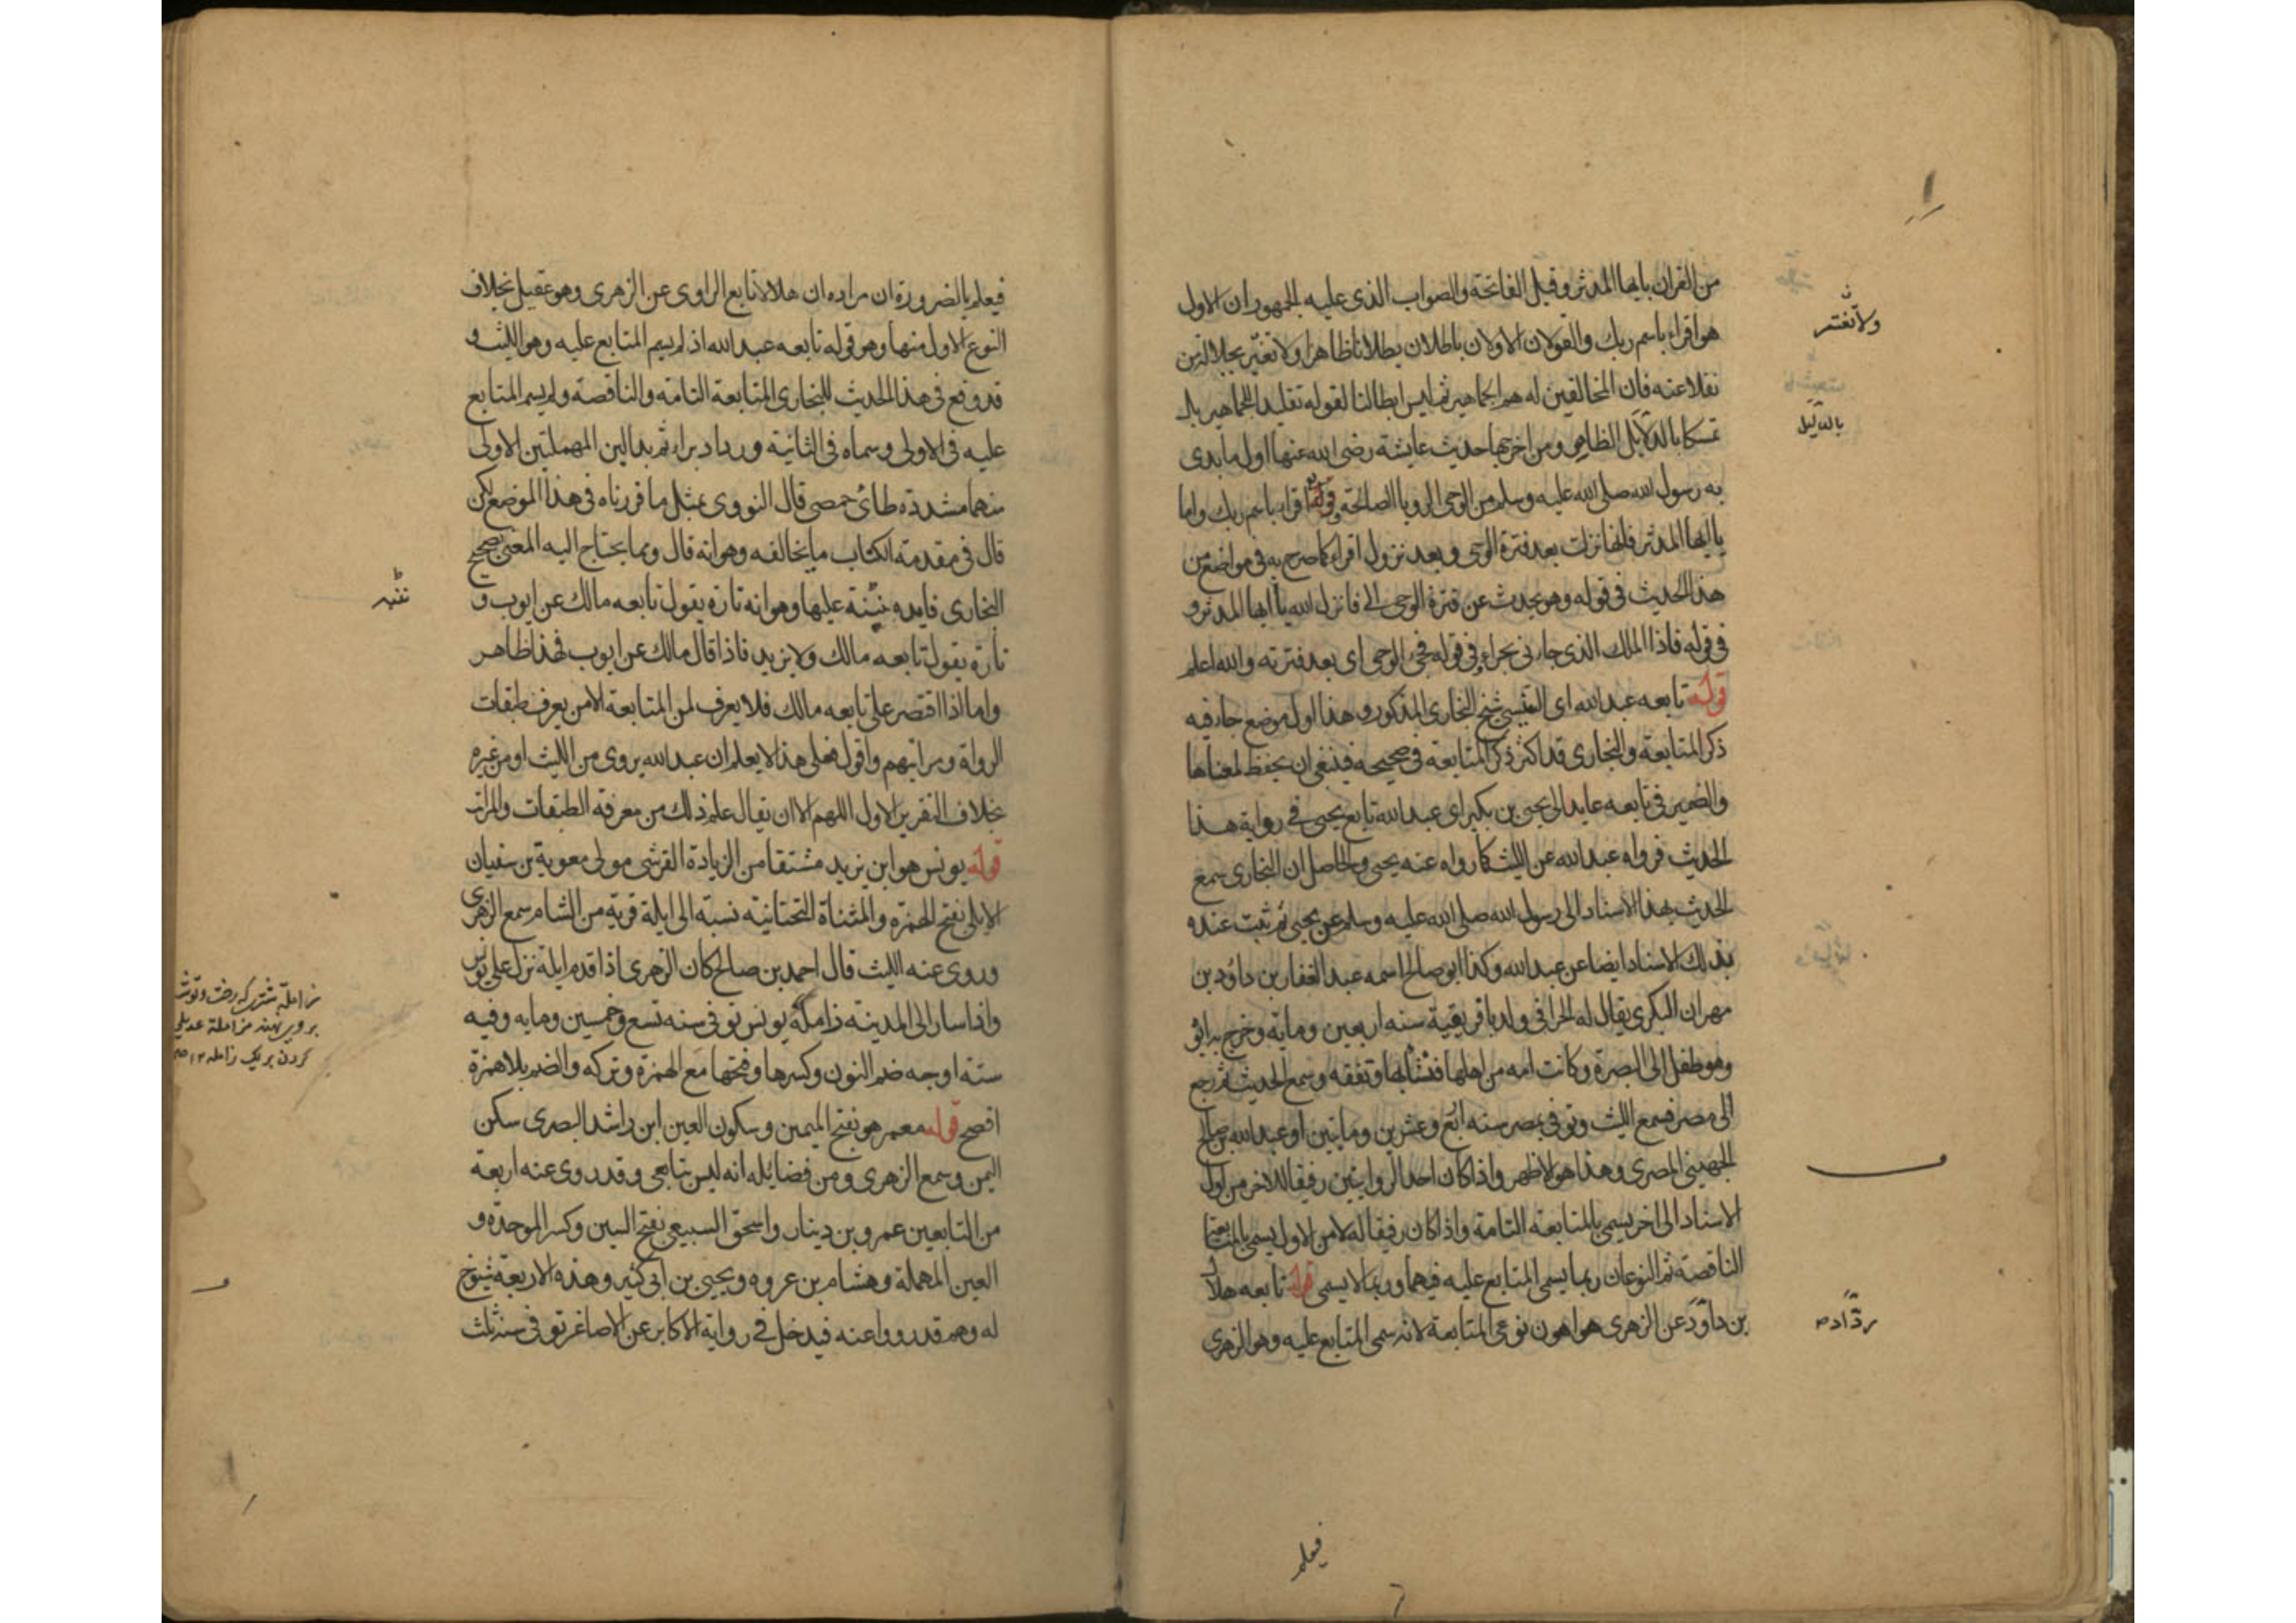 من القرآن يا ايها المدثر وقيل الفاتحة والصواب الذى عليه الجمهور ان الاول
هو اقراء باسم ربك والقولان الاولان باطلان بطلانا ظاهرا ولا تغتر بجلالة من
نقلا عنه فان المخالفين له هم الجماهير ثم ليس ابطالنا لقوله تقليدا للجماهير بل
تمسكا بالدلايل الظاهر ومن اخرجها حديث عايشة رضى الله عنها اول ما بدى
به رسول الله صلى الله عليه وسلم من الوحى الرويا الصالحة قوله اقراء باسم ربك واما
يا ايها المدثر فانها نزلت بعد فترة الوحى وبعد نزول اقراء كما صرح به فى مواضع من
هذا الحديث فى قوله وهو يحدث عن فترة الوحى الى فانزل الله يا ايها المدثر و
فى قوله فاذا الملك الذى جاءنى بحراء وفى قوله فحمى الوحى اى بعد فترته والله اعلم
قوله تابعه عبد الله اى التنيسى شيخ البخارى المذكور وهذا اول موضع جاء فيه
ذكر المتابعة والبخارى قد اكثر ذكر المتابعة فى صحيحه فينبغى ان يحفظ لمعناها
والضمير فى تابعه عايد الى يحيى بن بكير اى عبد الله تابع يحيى فى رواية هذا
الحديث فرواه عبد الله عن الليث كما رواه عنه يحيى والحاصل ان البخارى سمع
الحديث بهذا الاسناد الى رسول الله صلى الله عليه وسلم عن يحيى ثم ثبت عنده
بذلك الاسناد ايضا عن عبد الله وكذا ابو صالح اسمه عبد الغفار بن داؤد بن
مهران البكرى يقال له الحرانى ولد بافريقية سنه اربعين وماية وخرج به ابوه
وهو طفل الى البصرة وكانت امه من اهلها فنشا بها وتفقه وسمع الحديث ثم رجع
الى مصر فسمع الليث وتوفى بمصر سنه اربع وعشرين وماتين او عبد الله بن صالح
الجهينى المصرى وهذا هو الاظهر واذا كان احد الراويين رفيقا للاخر من اول
الاسناد الى اخر يسمى بالمتابعة التامة واذا كان رفيقا له لا من الاول يسمى بالمتابعة
الناقصة ثم النوعان ربما يسمى المتابع عليه فيهما وربما لا يسمى قوله تابعه هلال
بن داؤد عن الزهرى هو اهون نوعى المتابعة لانه سمى المتابع عليه وهو الزهرى
ولا تغتر
بالدلايل
رداد صح
فيعلم
فيعلم بالضرورة ان مراده ان هلالا تابع الراوى عن الزهرى وهو عقيل بخلاف
النوع الاول منها وهو قوله تابعه عبد الله اذ لم يسم المتابع عليه وهو الليث و
قد وقع فى هذا الحديث للبخارى المتابعة التامه والناقصة ولم يسم المتابع
عليه فى الاولى وسماه فى الثانية ورداد براء ثم بدالين المهملتين الاولى
منهما مشددة طائ حمصى قال النووى بمثل ما قررناه فى هذا الموضع لكن
قال فى مقدمة الكتاب ما يخالفه وهو انه قال ومما يحتاج اليه المعتنى بصحيح
البخارى فايده ننبه عليها وهو انه تارة يقول تابعه مالك عن ايوب و
تارة يقول تابعه مالك ولا يزيد فاذا قال مالك عن ايوب فهذا ظاهر
واما اذا اقتصر على تابعه مالك فلا يعرف لمن المتابعة الا من يعرف طبقات
الرواة ومراتبهم واقول فعلى هذا لا يعلم ان عبد الله يروى من الليث او من غيره
بخلاف التقرير الاول اللهم الا ان يقال علم ذلك من معرفة الطبقات والمراتب
قوله يونس هو ابن يزيد مشتقا من الزيادة القرشى مولى معوية بن سفيان
الايلى بفتح الهمزة والمثناة التحتانية نسبة الى ايلة قرية من الشام سمع الزهرى
وروى عنه الليث قال احمد بن صالح كان الزهرى اذا قدم ايلة نزل على يونس
واذا سار الى المدينة زامله يونس توفى سنه تسع وخمسين وماية وفيه
ستة اوجه ضم النون وكسرها وفتحها مع الهمزة وتركه والضم بلا همزة
افصح قوله معمر هو بفتح الميمين وسكون العين ابن راشد البصرى سكن
اليمن وسمع الزهرى ومن فضايله انه ليس بتابعى وقد روى عنه اربعة
من التابعين عمرو بن دينار واسحق السبيعى بفتح السين وكسر الموحدة و
العين المهملة وهشام بن عروه ويحيى بن ابى كثير وهذه الاربعة شيوخ
له وهم قد رووا عنه فيدخل فى رواية الاكابر عن الاصاغر توفى سنه ثلث
ننبه
زامله شترى كه رخت وتوشه
بروى نهند مزاملة عديلى
كردن بر يك زامله ١٢